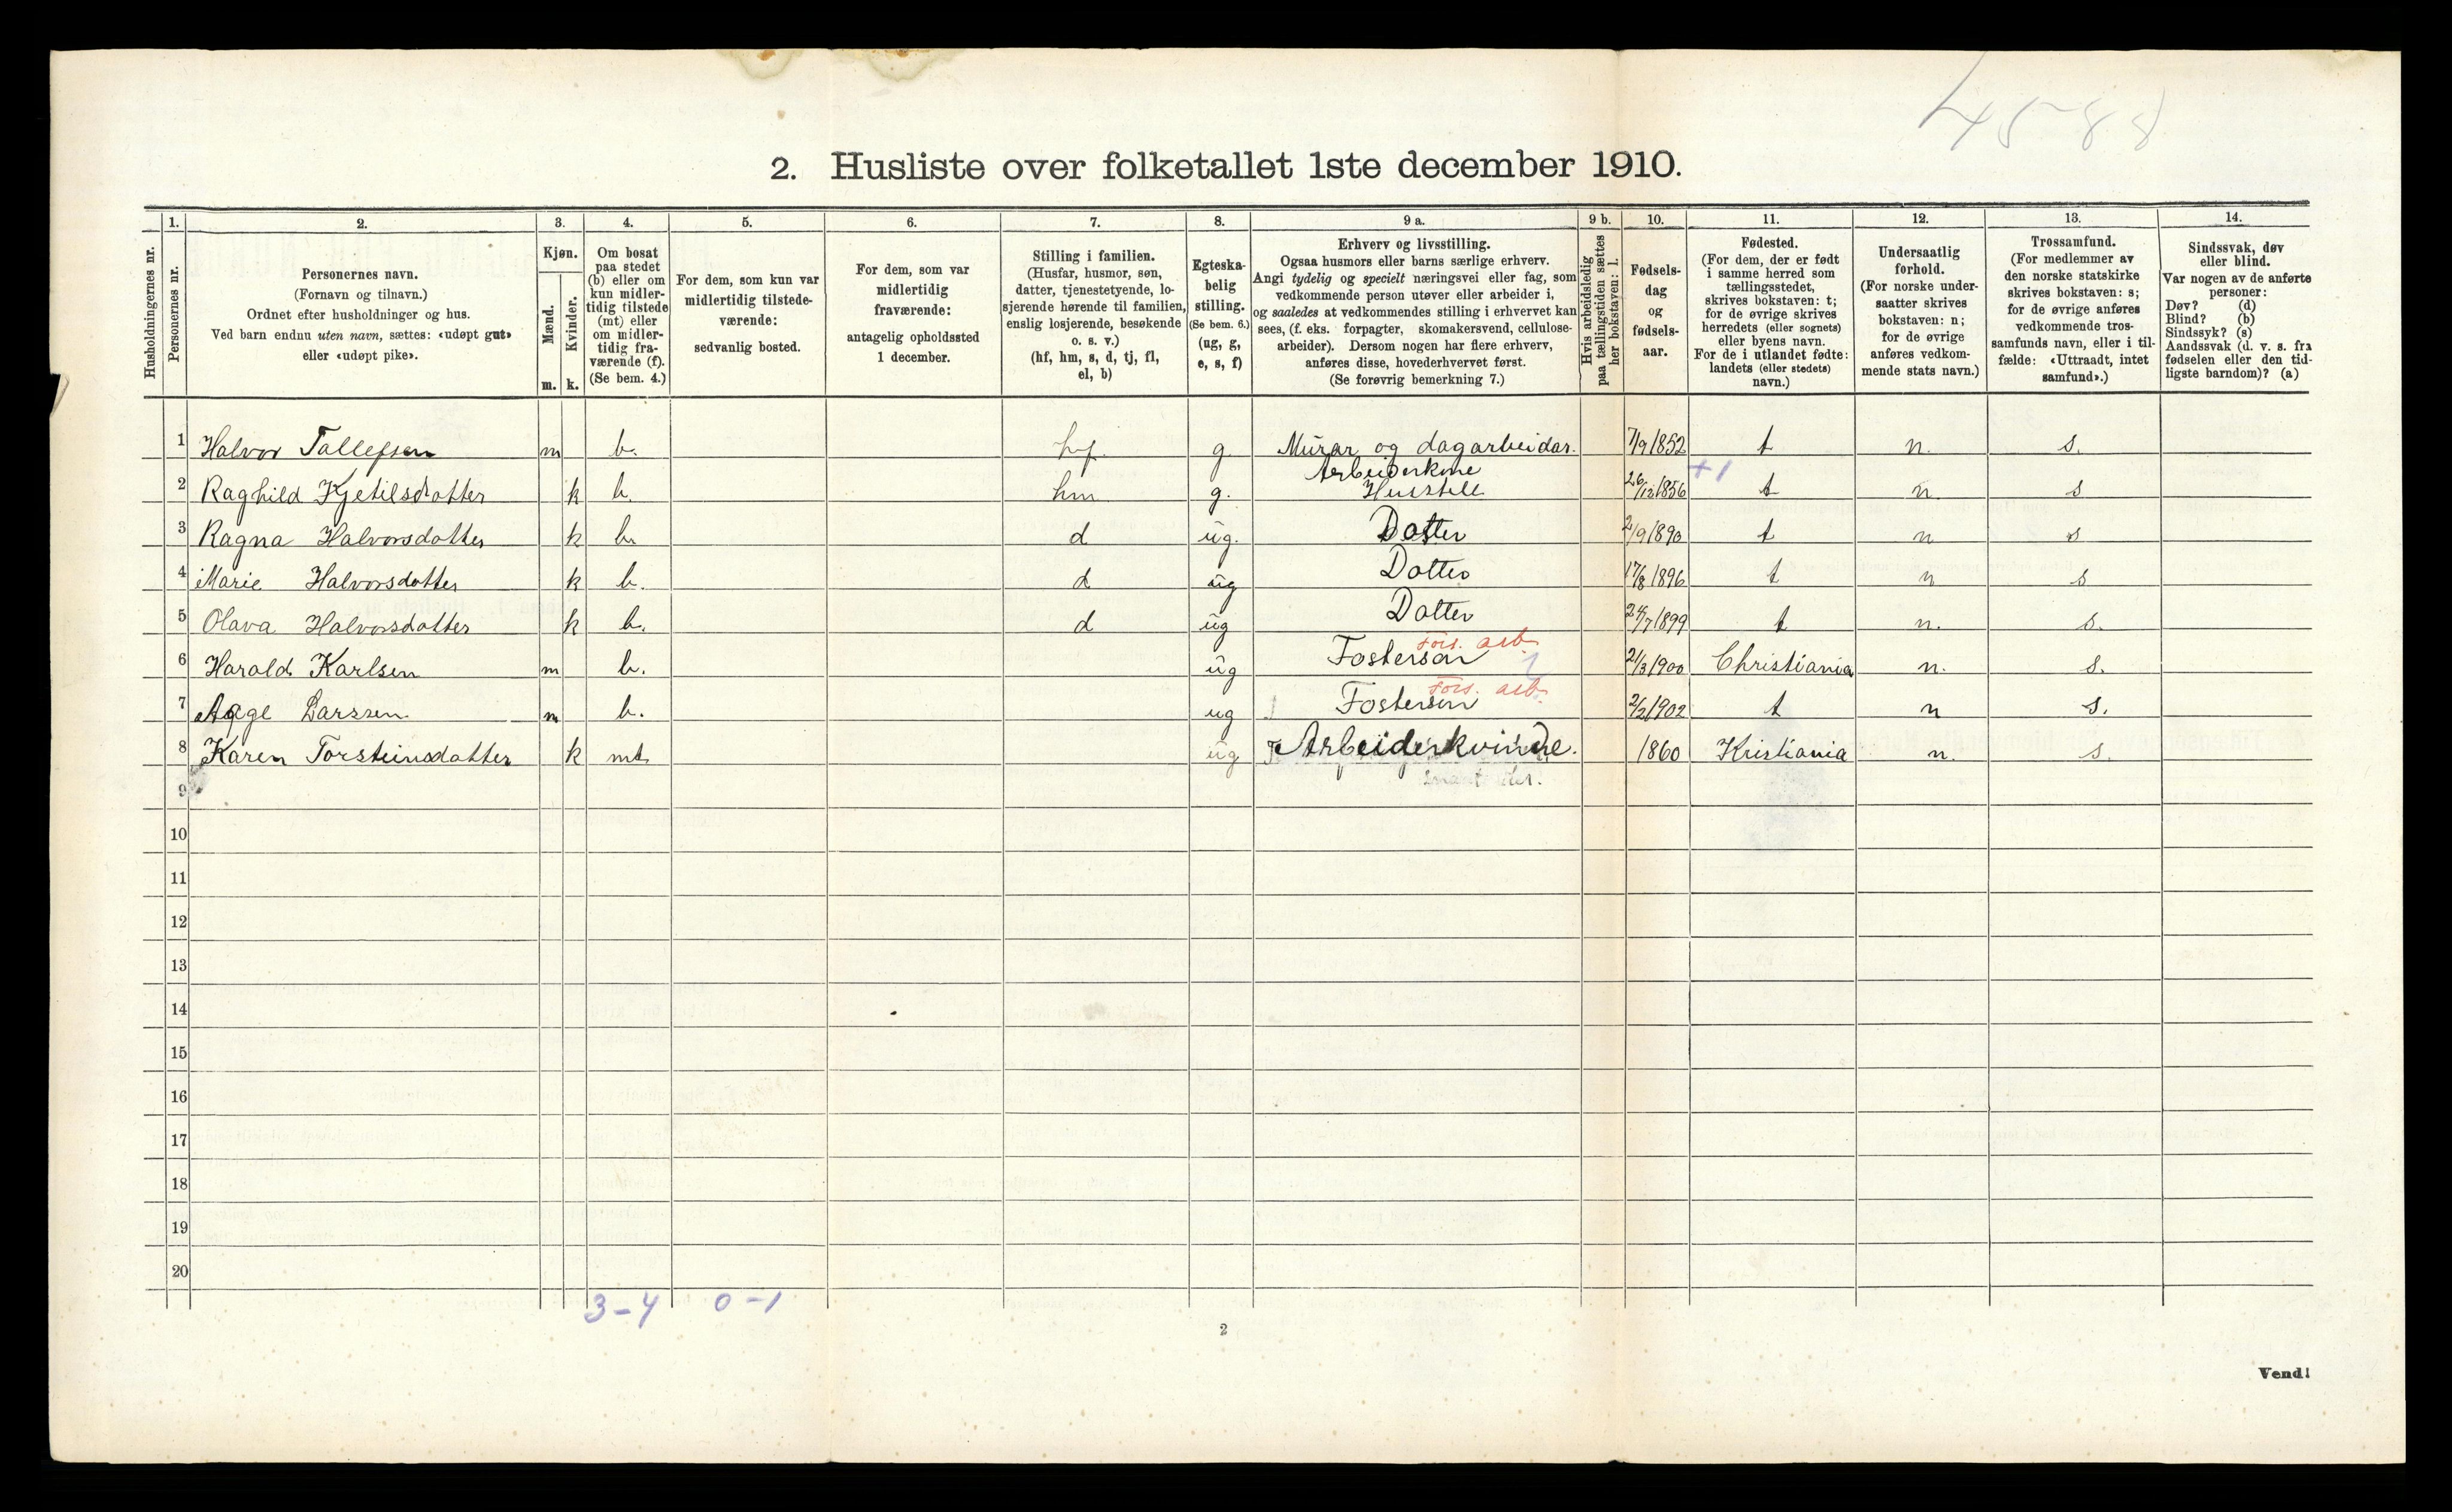 4588
2. Husliste over folketallet 1ste december 1910.
Husholdningernes nr.
1.
Personernes nr.
2.
Personernes navn.
(Fornavn og tilnavn.)
Ordnet efter husholdninger og hus.
Ved barn endnu uten navn, sættes: «udøpt gut»
eller «udøpt pike».
3.
Kjøn.
Mænd.
Kvinder.
m. k.
4.
Om bosat
paa stedet
(b) eller om
kun midler-
tidig tilstede
(mt) eller
om midler-
tidig fra-
værende (f).
(Se bem. 4.)
5.
For dem, som kun var
midlertidig tilstede-
værende:
sedvanlig bosted.
6.
For dem, som var
midlertidig
fraværende:
antagelig opholdssted
1 december.
7.
Stilling i familien.
(Husfar, husmor, søn,
datter, tjenestetyende, lo-
sjerende hørende til familien,
enslig losjerende, besøkende
o. s. v.)
(hf, hm, s, d, tj, fl,
el, b)
8.
Egteska-
belig
stilling.
(Se bem. 6.)
(ug, g,
e, s, f)
9 a.
Erhverv og livsstilling.
Ogsaa husmors eller barns særlige erhverv.
Angi tydelig og specielt næringsvei eller fag, som
vedkommende person utøver eller arbeider i,
og saaledes at vedkommendes stilling i erhvervet kan
sees, (f. eks. forpagter, skomakersvend, cellulose-
arbeider). Dersom nogen har flere erhverv,
anføres disse, hovederhvervet først.
(Se forøvrig bemerkning 7.)
9 b.
Hvis arbeidsledig
paa tællingstiden sættes
her bokstaven: l.
10.
Fødsels-
dag
og
fødsels-
aar.
11.
Fødested.
(For dem, der er født
i samme herred som
tællingsstedet,
skrives bokstaven: t;
for de øvrige skrives
herredets (eller sognets)
eller byens navn.
For de i utlandet fødte:
landets (eller stedets)
navn.)
12.
Undersaatlig
forhold.
(For norske under-
saatter skrives
bokstaven: n;
for de øvrige
anføres vedkom-
mende stats navn.)
13.
Trossamfund.
(For medlemmer av
den norske statskirke
skrives bokstaven: s;
for de øvrige anføres
vedkommende tros-
samfunds navn, eller i til-
fælde: «Uttraadt, intet
samfund».)
14.
Sindssvak, døv
eller blind.
Var nogen av de anførte
personer:
Døv? (d)
Blind? (b)
Sindssyk? (s)
Aandssvak (d. v. s. fra
fødselen eller den tid-
ligste barndom)? (a)
1 Halvor Tallefsen m b. hf. g. Murar og dagarbeidar. 7/9 1852 t n. s.
Arbeiderkone +1
2 Raghild Kjetilsdatter k b. hm g. Husstell 26/12 1856 t n. s
3 Ragna Halvorsdatter k b. d ug. Datter 2/9 1890 t n s
4 Marie Halvorsdatter k b. d ug Datter 17/8 1896 t n s
5 Olava Halvorsdatter k b. d ug Datter 24/7 1899 t n. s.
Fors. arb.
6 Harald Karlsen m b. ug Fosterson 21/3 1900 Christiania n. s.
Fors. arb.
7 Aage Larssen. m b. ug Fosterson 2/2 1902 t n s.
8 Karen Torsteinsdatter k mt ug Arbeiderkvinde. 1860 Kristiania n. s.
9
10
11
12
13
14
15
16
17
18
19
20
3-4 0-1
2
Vend!